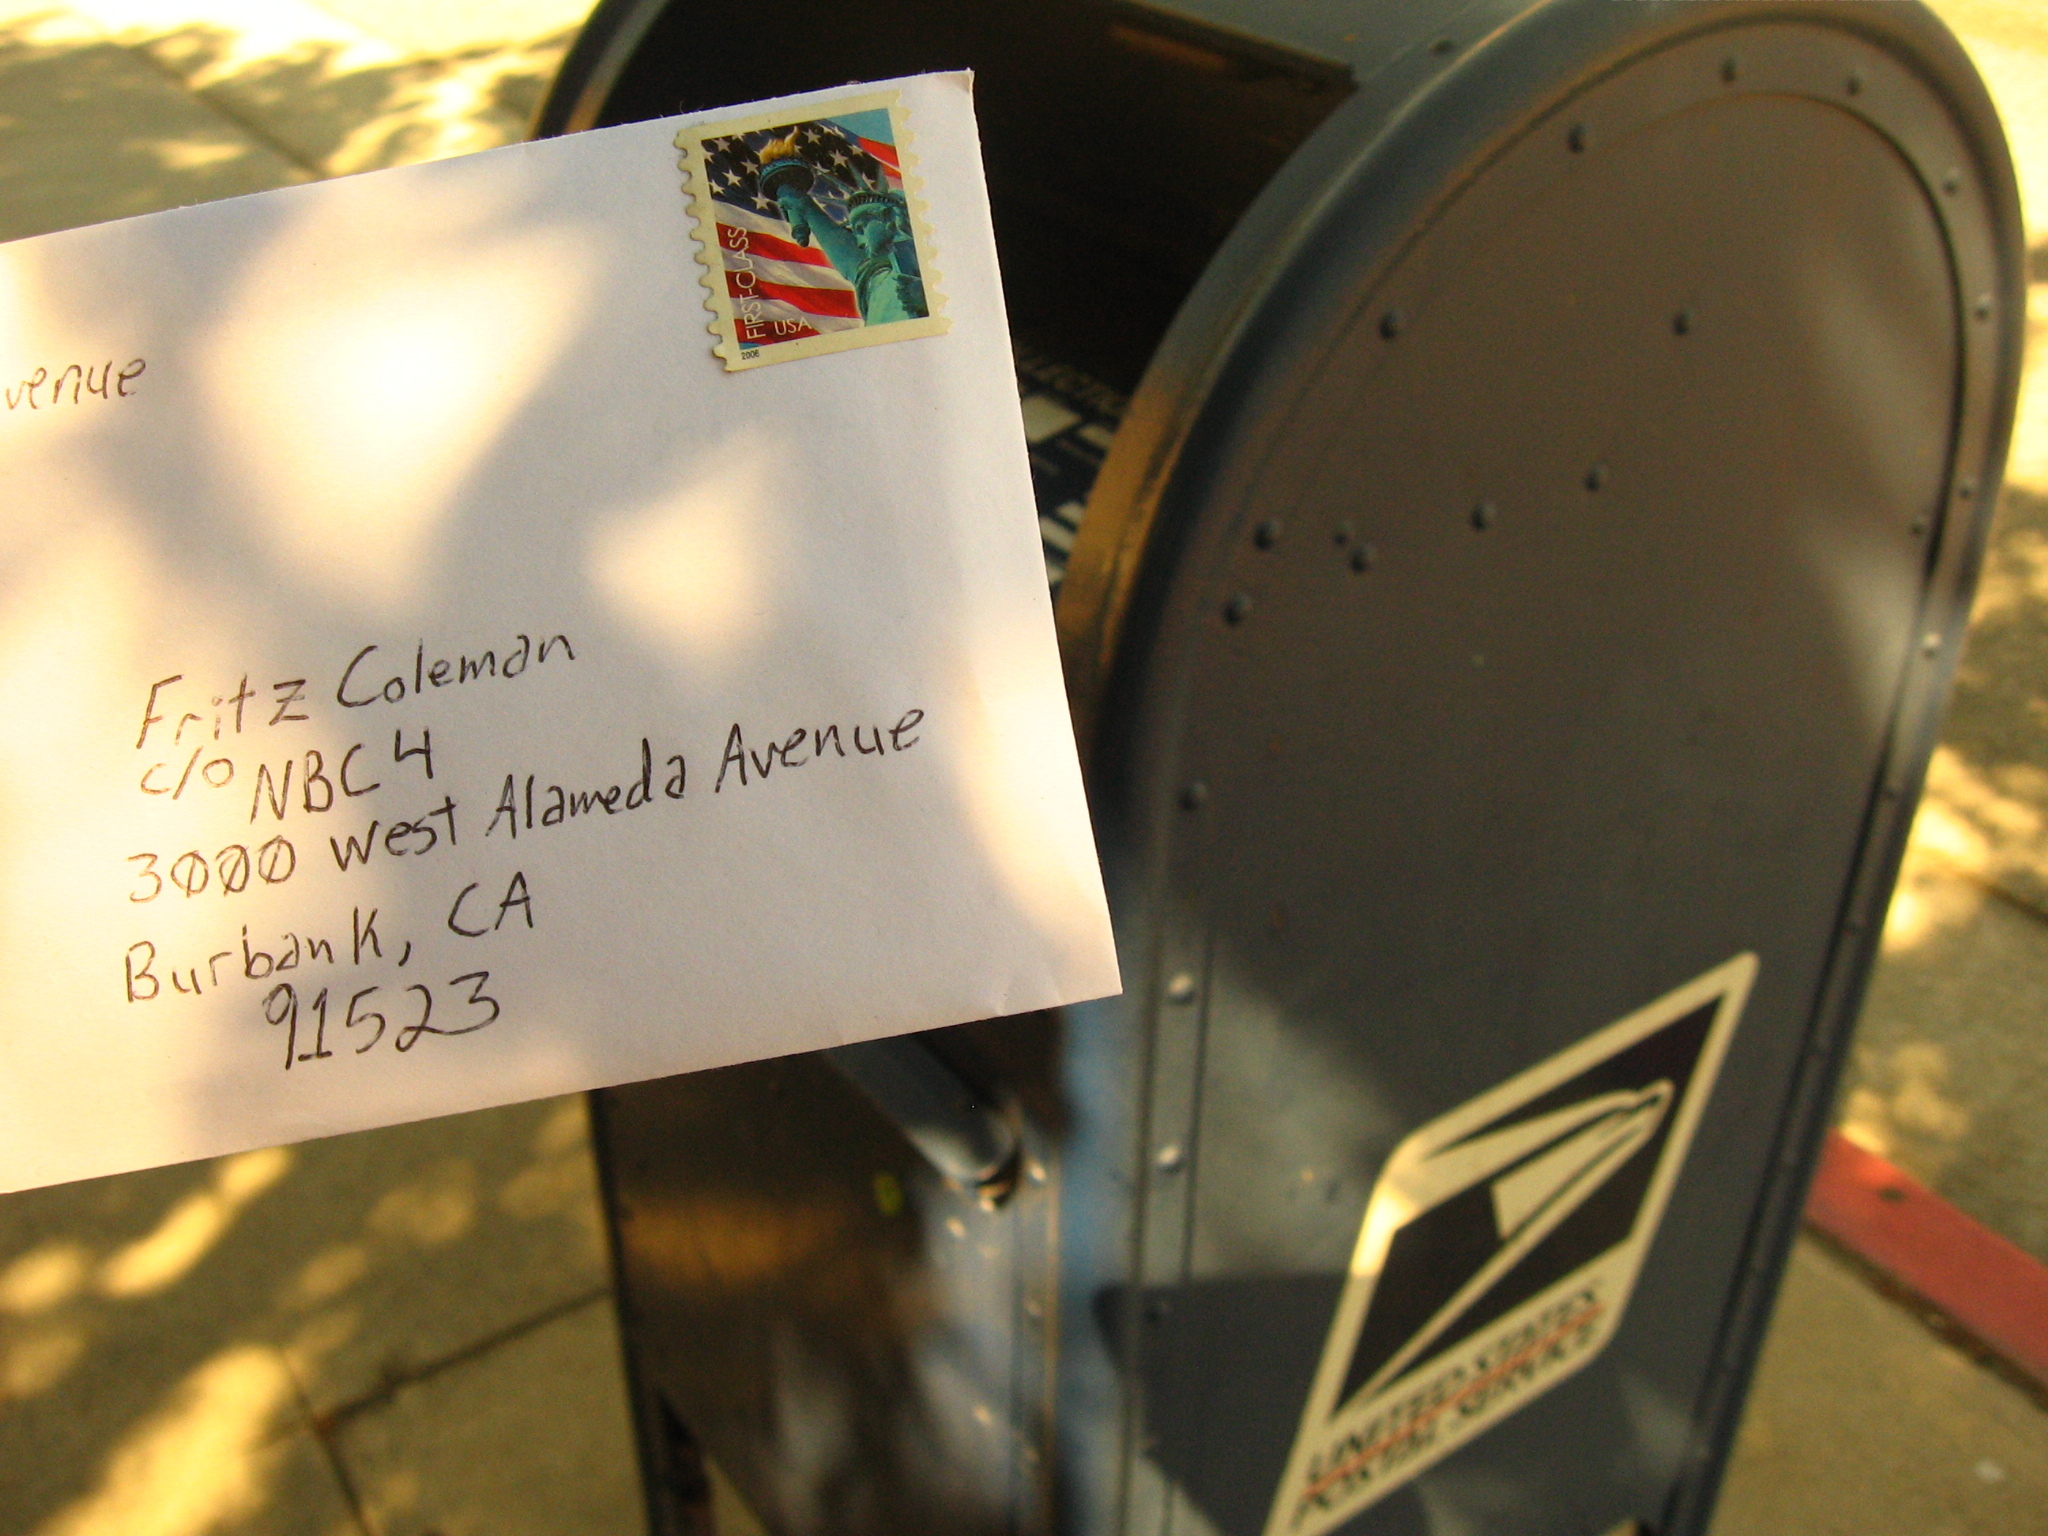 FIRST-CLASS
USA
2006
venue
Fritz Coleman
c/o NBC 4
3000 West Alameda Avenue
Burbank, CA
91523
UNITED STATES
POSTAL SERVICE